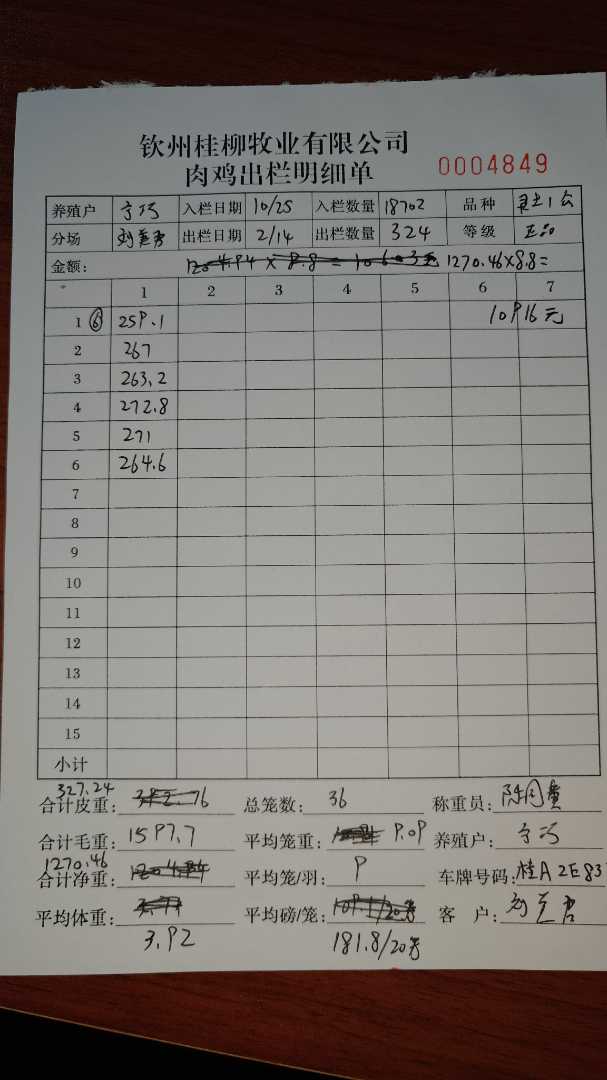 钦州桂柳牧业有限公司
肉鸡出栏明细单 0004849
养殖户 宁巧 入栏日期 10/25 入栏数量 18702 品种
分场 出栏日期 2/14 出栏数量 324 等级 正品
金额: 1270.46×8.8=
1 2 3 4 5 6 7
1 ⑥ 259.1 10916元
2 267
3 263.2
4 272.8
5 271
6 264.6
7
8
9
10
11
12
13
14
15
小计
327.24
合计皮重: 总笼数: 36 称重员:
合计毛重: 1597.7 平均笼重: 9.09 养殖户: 宁巧
1270.46
合计净重: 平均笼/羽: 9 车牌号码: 桂A2E83
平均体重: 平均磅/笼: 客 户:
3.92 181.8/20笼